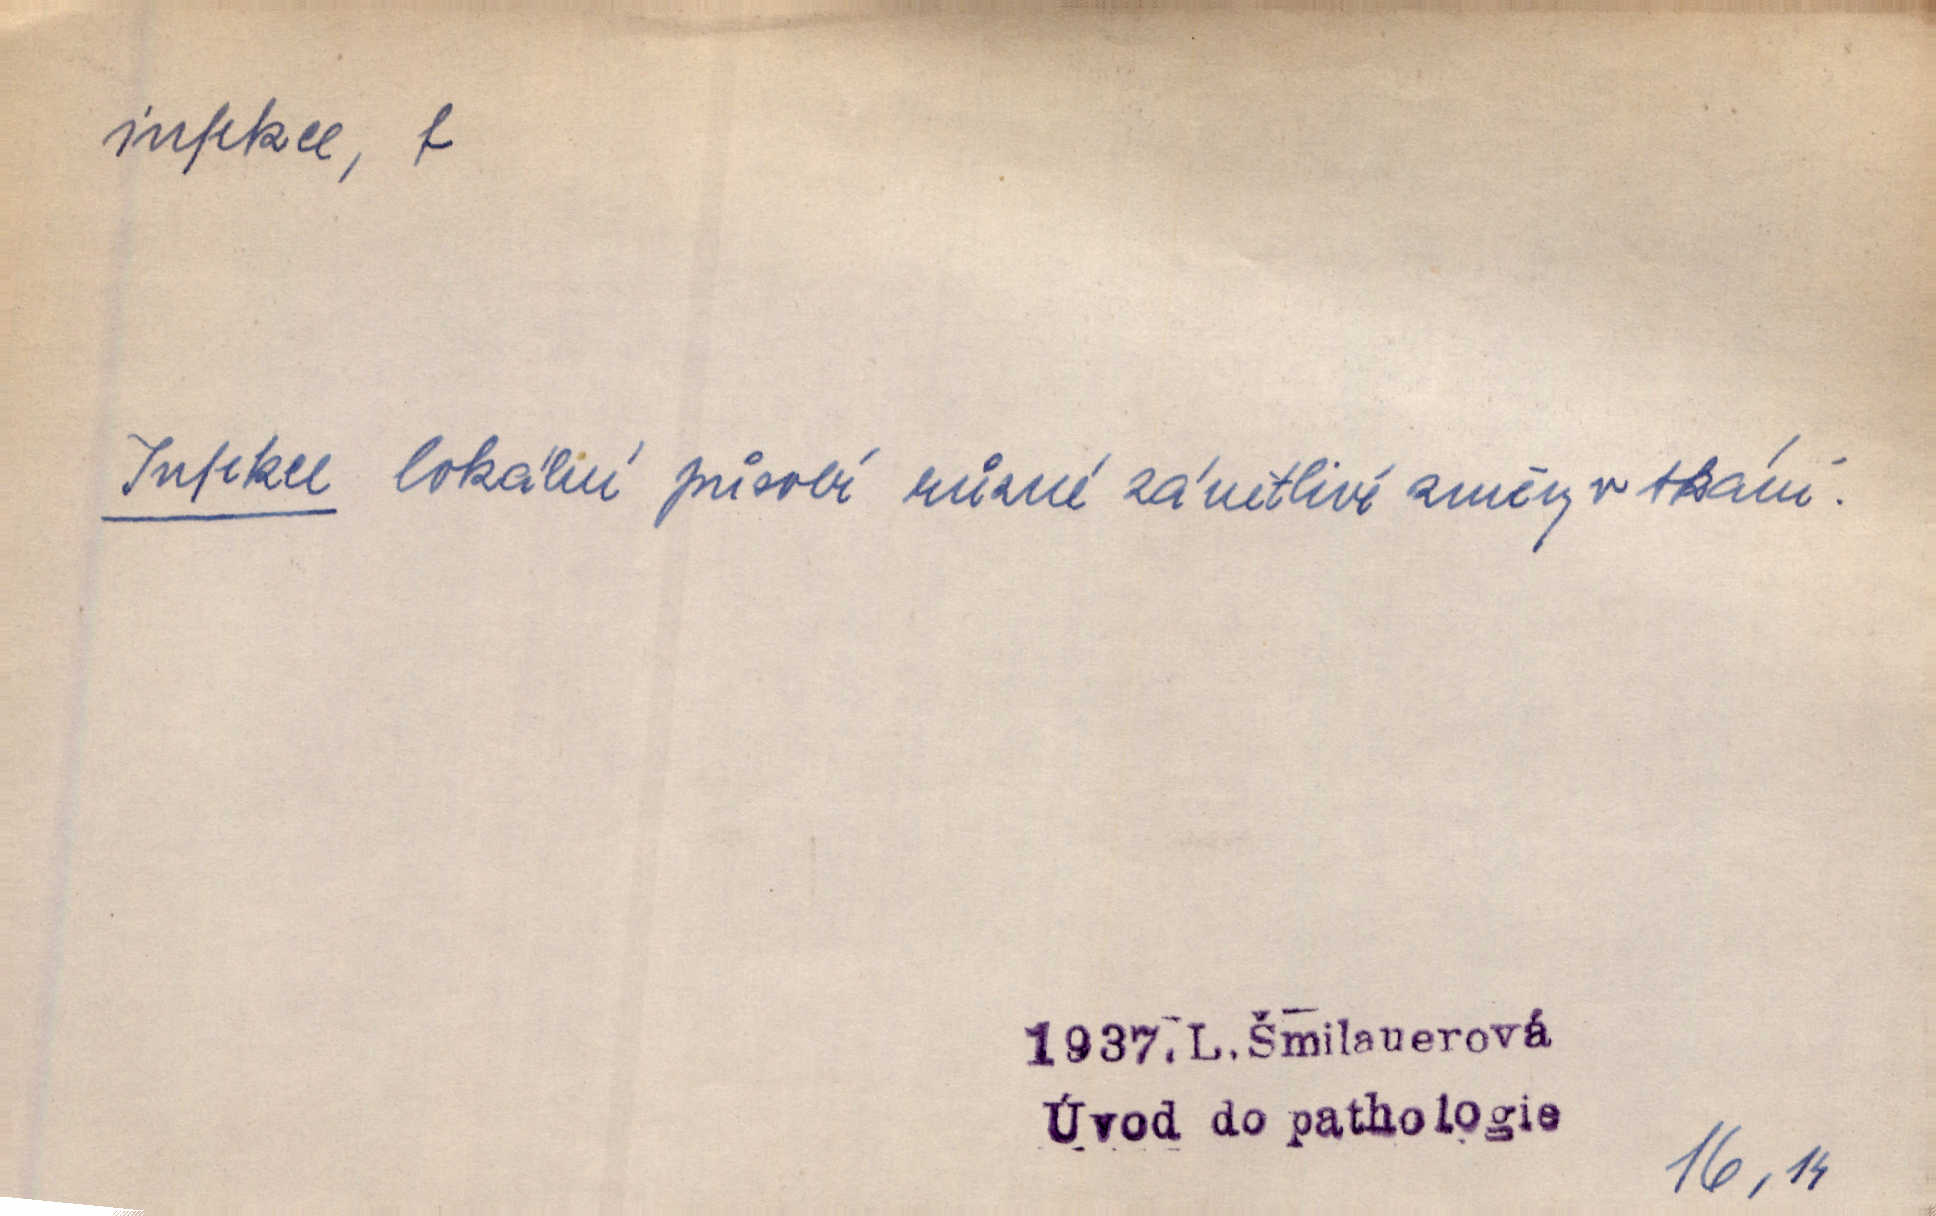 infekce, f
Infekce lokální působí různé zánětlivé změny v tkáni.
1937. L. Šmilauerová
Úvod do pathologie
16, 14